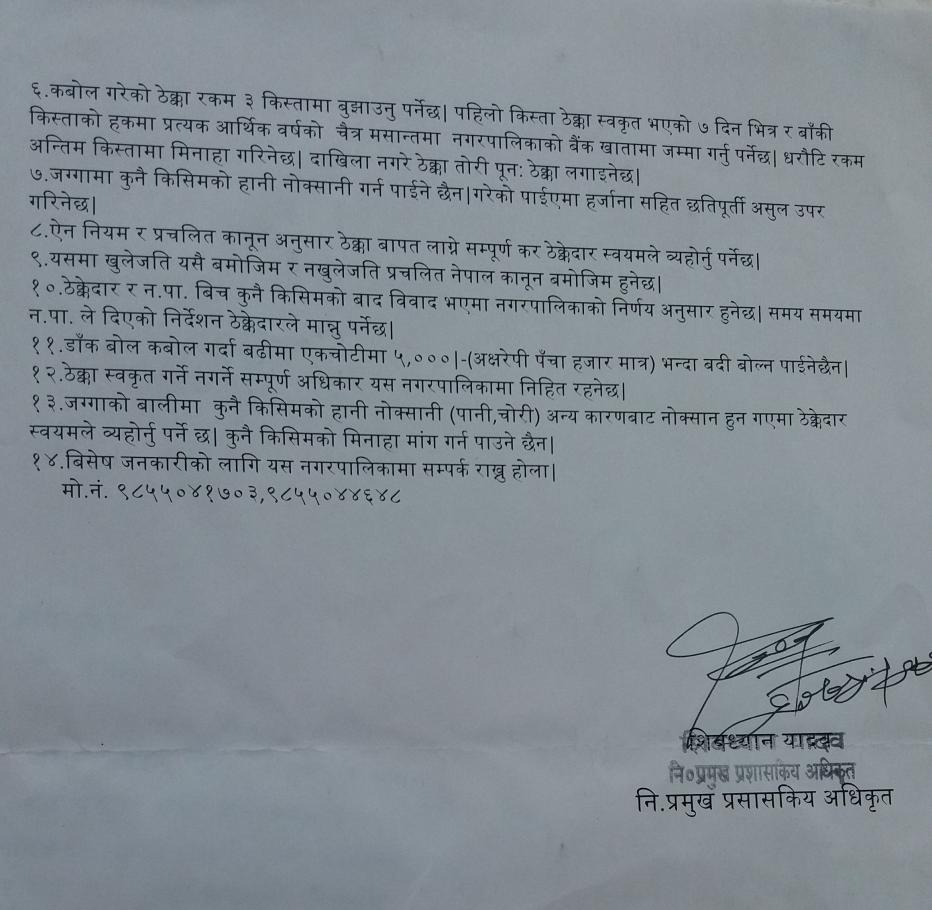 ६.कबोल गरेको ठेक्का रकम ३ किस्तामा बुझाउनु पर्नेछ| पहिलो किस्ता ठेक्का स्वकृत भएको ७ दिन भित्र र बाँकी
किस्ताको हकमा प्रत्यक आर्थिक वर्षको चैत्र मसान्तमा नगरपालिकाको बैंक खातामा जम्मा गर्नु पर्नेछ| धरौटि रकम
अन्तिम किस्तामा मिनाहा गरिनेछ| दाखिला नगरे ठेक्का तोरी पून: ठेक्का लगाइनेछ|
७.जग्गामा कुनै किसिमको हानी नोक्सानी गर्न पाईने छैन|गरेको पाईएमा हर्जाना सहित छतिपूर्ती असुल उपर
गरिनेछ|
८.ऐन नियम र प्रचलित कानून अनुसार ठेक्का बापत लाग्ने सम्पूर्ण कर ठेक्केदार स्वयमले व्यहोर्नु पर्नेछ|
९.यसमा खुलेजति यसै बमोजिम र नखुलेजति प्रचलित नेपाल कानून बमोजिम हुनेछ|
१०.ठेक्केदार र न.पा. बिच कुनै किसिमको बाद विवाद भएमा नगरपालिकाको निर्णय अनुसार हुनेछ| समय समयमा
न.पा. ले दिएको निर्देशन ठेक्केदारले मान्नु पर्नेछ|
११.डाँक बोल कबोल गर्दा बढीमा एकचोटीमा ५,०००|-(अक्षरेपी पँचा हजार मात्र) भन्दा बदी बोल्न पाईनेछैन|
१२.ठेक्का स्वकृत गर्ने नगर्ने सम्पूर्ण अधिकार यस नगरपालिकामा निहित रहनेछ|
१३.जग्गाको बालीमा कुनै किसिमको हानी नोक्सानी (पानी,चोरी) अन्य कारणबाट नोक्सान हुन गएमा ठेक्केदार
स्वयमले व्यहोर्नु पर्ने छ| कुनै किसिमको मिनाहा मांग गर्न पाउने छैन|
१४.बिसेष जनकारीको लागि यस नगरपालिकामा सम्पर्क राख्नु होला|
मो.नं. ९८५५०४१७०३,९८५५०४४६४८
शिवध्यान यादव
नि०प्रमुख प्रशासकिय अधिकृत
नि.प्रमुख प्रसासकिय अधिकृत